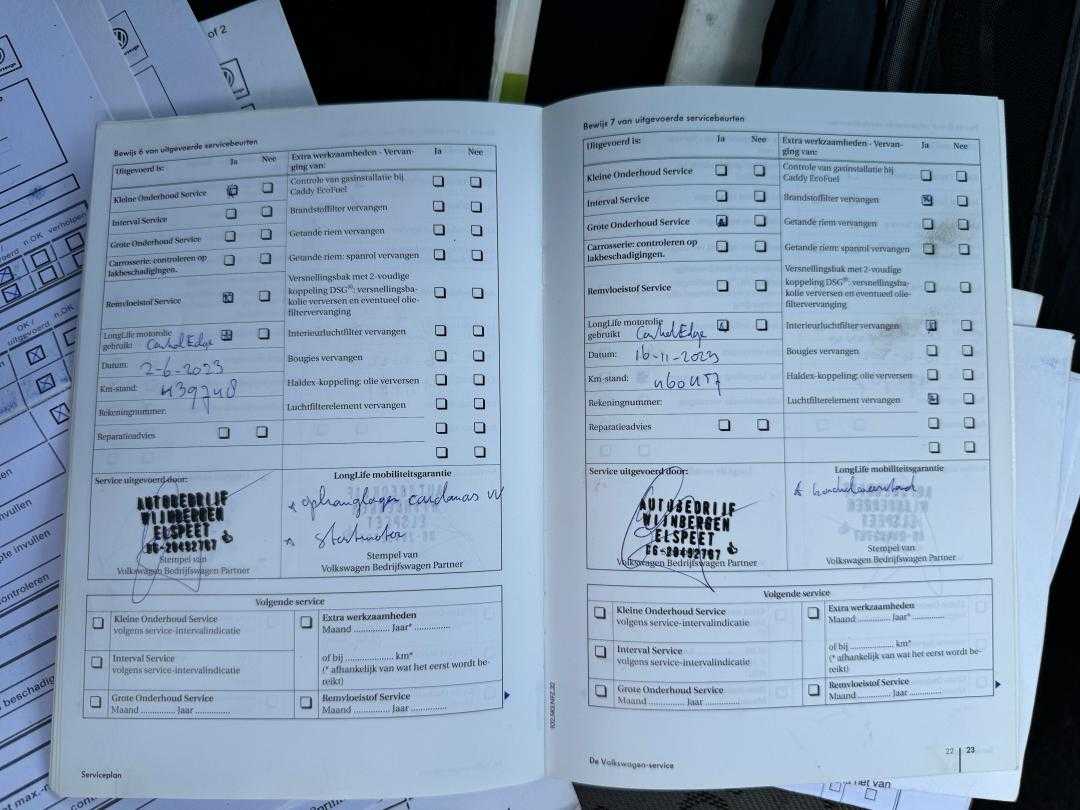 of 2
Bewijs 6 van uitgevoerde servicebeurten
Uitgevoerd is:
Ja
Nee
Extra werkzaamheden - Vervan-
ging van:
Ja
Nee
Kleine Onderhoud Service
Controle van gasinstallatie bij
Caddy EcoFuel
Interval Service
Brandstoffilter vervangen
Grote Onderhoud Service
Getande riem vervangen
Carrosserie: controleren op
lakbeschadigingen.
Getande riem: spanrol vervangen
Remvloeistof Service
Versnellingsbak met 2-voudige
koppeling DSG®: versnellingsba-
kolie verversen en eventueel olie-
filtervervanging
LongLife motorolie
gebruikt: Castrol Edge
Interieurluchtfilter vervangen
Datum: 2-6-2023
Bougies vervangen
Km-stand: 439748
Haldex-koppeling: olie verversen
Rekeningnummer:
Luchtfilterelement vervangen
Reparatieadvies
Service uitgevoerd door:
LongLife mobiliteitsgarantie
AUTOBEDRIJF
WIJNBERGEN
ELSPEET
06-20492767
ophanglager cardanas
Startmotor
Stempel van
Volkswagen Bedrijfswagen Partner
Stempel van
Volkswagen Bedrijfswagen Partner
Volgende service
Kleine Onderhoud Service
volgens service-intervalindicatie
Extra werkzaamheden
Maand .............. Jaar* ..............
Interval Service
volgens service-intervalindicatie
of bij .................. km*
(* afhankelijk van wat het eerst wordt be-
reikt)
Grote Onderhoud Service
Maand .............. Jaar ..............
Remvloeistof Service
Maand .............. Jaar ..............
Serviceplan
Bewijs 7 van uitgevoerde servicebeurten
Uitgevoerd is:
Ja
Nee
Extra werkzaamheden - Vervan-
ging van:
Ja
Nee
Kleine Onderhoud Service
Controle van gasinstallatie bij
Caddy EcoFuel
Interval Service
Brandstoffilter vervangen
Grote Onderhoud Service
Getande riem vervangen
Carrosserie: controleren op
lakbeschadigingen.
Getande riem: spanrol vervangen
Remvloeistof Service
Versnellingsbak met 2-voudige
koppeling DSG®: versnellingsba-
kolie verversen en eventueel olie-
filtervervanging
LongLife motorolie
gebruikt: Castrol Edge
Interieurluchtfilter vervangen
Datum: 16-11-2023
Bougies vervangen
Km-stand:
Haldex-koppeling: olie verversen
Rekeningnummer:
Luchtfilterelement vervangen
Reparatieadvies
Service uitgevoerd door:
LongLife mobiliteitsgarantie
AUTOBEDRIJF
WIJNBERGEN
ELSPEET
06-20492767
Volkswagen Bedrijfswagen Partner
Stempel van
Volkswagen Bedrijfswagen Partner
Volgende service
Kleine Onderhoud Service
volgens service-intervalindicatie
Extra werkzaamheden
Maand .............. Jaar* ..............
Interval Service
volgens service-intervalindicatie
of bij .................. km*
(* afhankelijk van wat het eerst wordt be-
reikt)
Grote Onderhoud Service
Maand .............. Jaar ..............
Remvloeistof Service
Maand .............. Jaar ..............
De Volkswagen-service
22 | 23